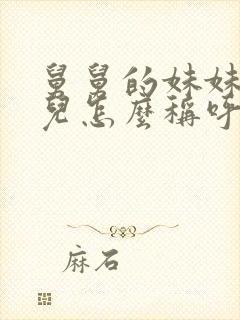 舅舅的妹妹
兒怎麼稱呼
麻石